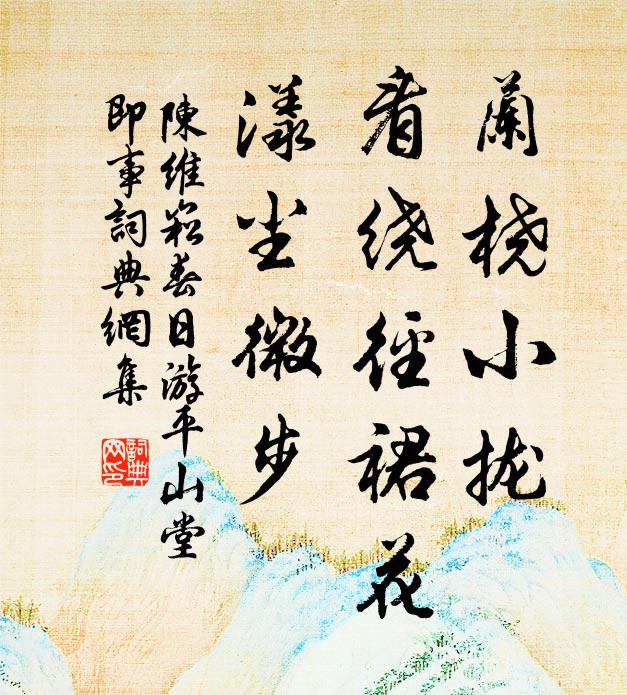 蘭桡小拢
看绕徑裙花
漾尘微步
陳維崧春日游平山堂
即事詞典網集
詞典网印